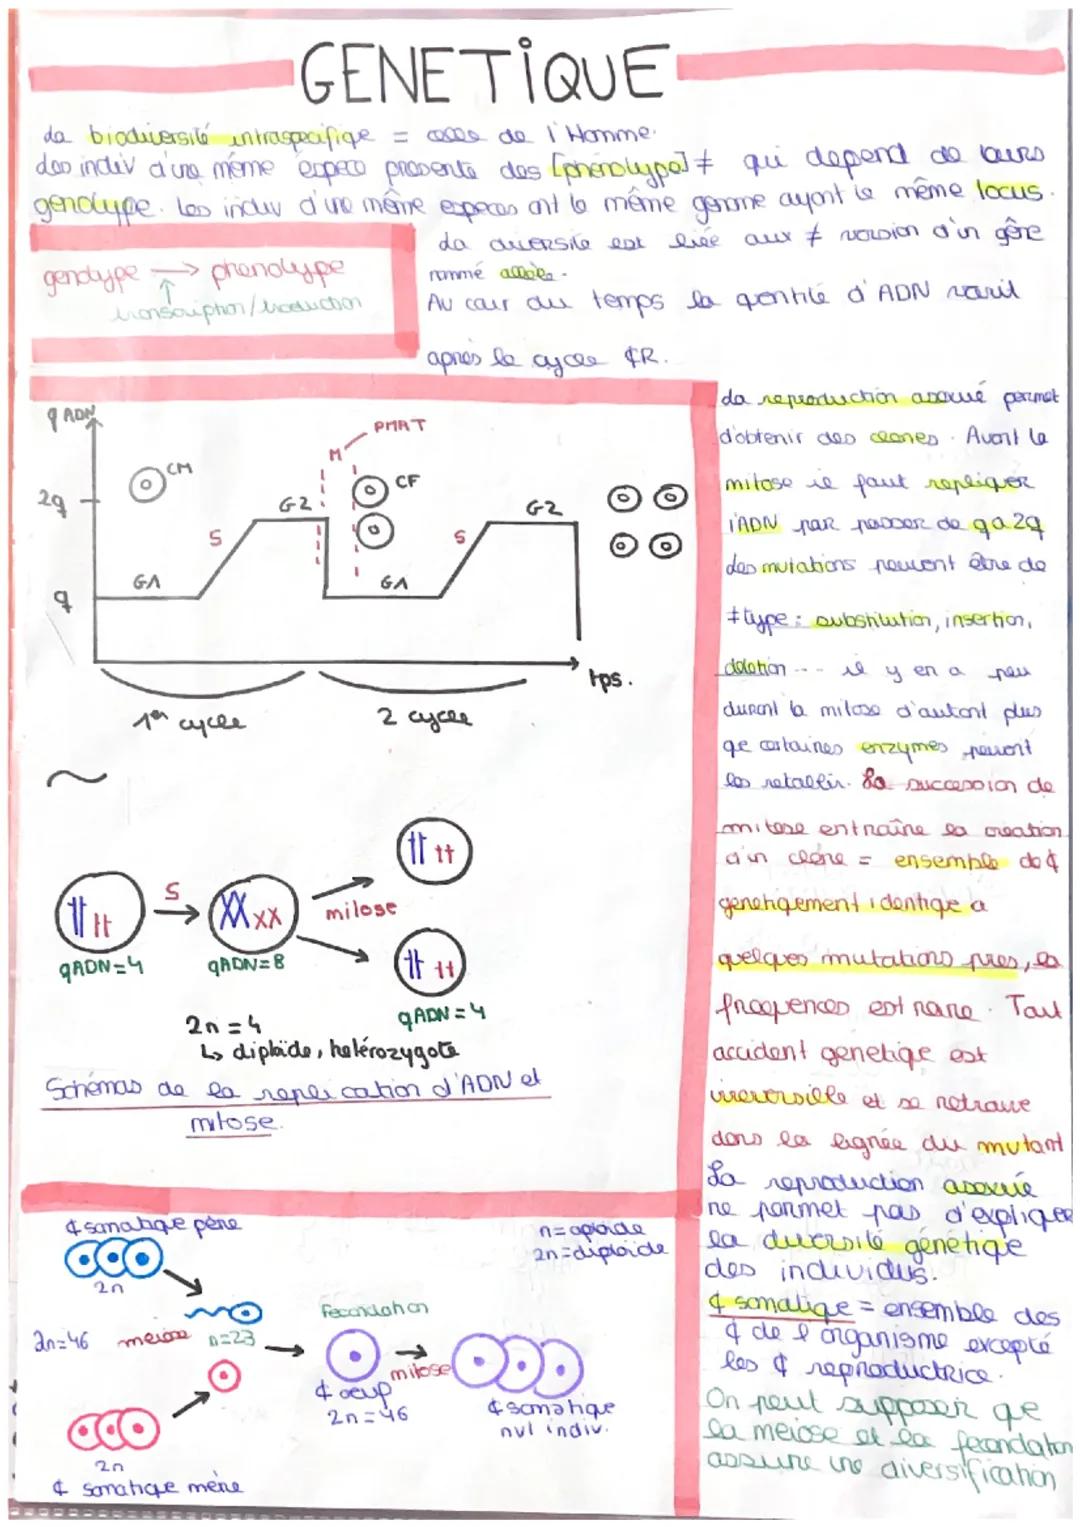 GENETIQUE
La biodiversité intraspécifique = celle de l'Homme.
des indiv d'une même espece presente des [phénotype] ≠ qui depend de leurs
genotype. Les indiv d'une même especes ont le même genome ayant le même locus.
La diversite est liée aux ≠ version d'un gène
nommé allèle.
Au cour du temps la quantité d'ADN varit
après le cycle ¢R.
genotype → phenotype
↑
transcription/traduction
q ADN
2q
q
CM
G1
S
G2
M
PMAT
CF
G1
S
G2
tps.
1er cycle
2 cycle
~
S
mitose
qADN=4
qADN=8
qADN=4
2n=4
↳ diploïde, hétérozygote
Schémas de la replication d'ADN et
mitose.
La reproduction asexué permet
d'obtenir des clones. Avant la
mitose il faut repliquer
l'ADN par passer de q a 2q
des mutations peuvent être de
≠ type : substitution, insertion,
deletion --- il y en a peu
durant la mitose d'autant plus
qe certaines enzymes peuvent
les retablir. La succession de
mitose entraîne la creation
d'un clone = ensemble de ¢
genetiqement identiqe a
quelques mutations pres, la
freqences est rare. Tout
accident genetiqe est
irreversible et se retrouve
dans la lignée du mutant
La reproduction asexuée
ne permet pas d'expliquer
la diversité génétique
des individus.
¢ somatique = ensemble des
¢ de l'organisme excepté
les ¢ reproductrice.
On peut supposer que
la meiose et la fecondation
assure une diversification
¢ somatiqe père
2n
2n=46
meiose
n=23
2n
¢ somatiqe mère
Fecondation
¢ oeuf
2n=46
mitose
¢ somatique
nvl indiv.
n=aploide
2n=diploide